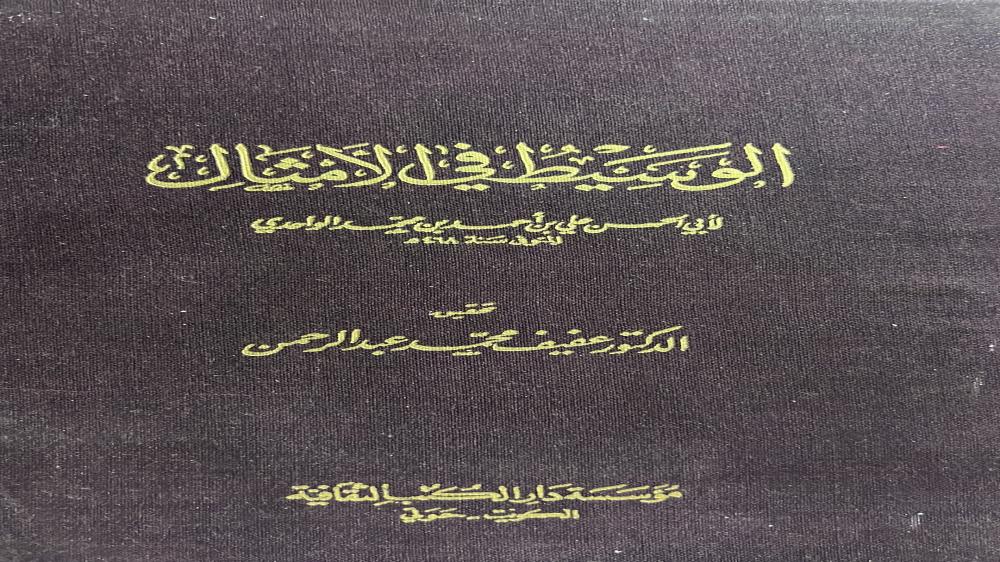 الوسيط في الأمثال
لأبي الحسن علي بن أحمد بن محمد الواحدي
المتوفى سنة ٤٦٨ه
تحقيق
الدكتور عفيف محمد عبد الرحمن
مؤسسة دار الكتب الثقافية
الكويت - حولي